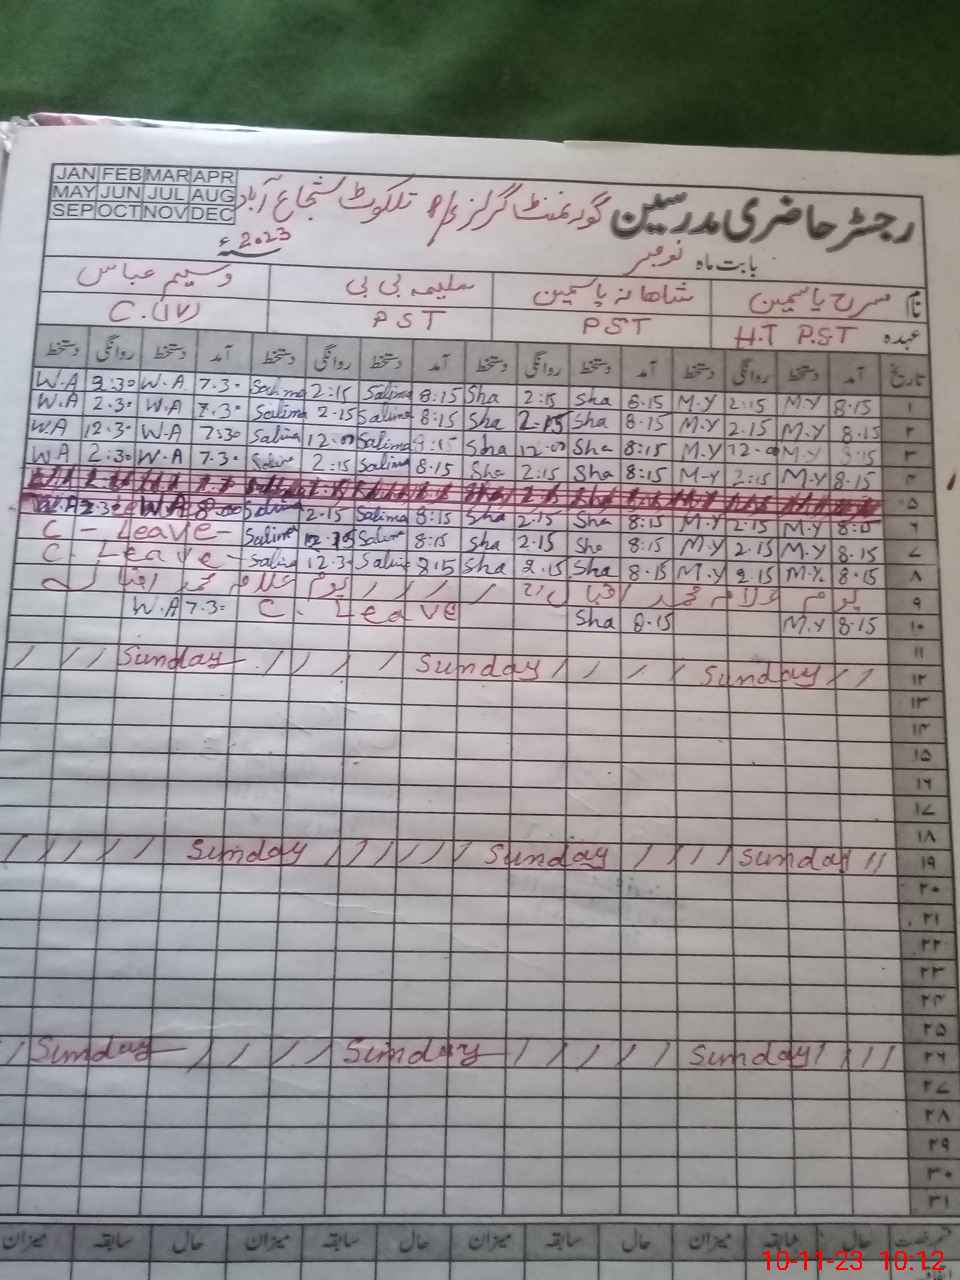 JAN FEB MAR APR
MAY JUN JUL AUG
SEP OCT NOV DEC
رجسٹر حاضری مدرسین گورنمنٹ گرلز تلکوٹ شجاع آباد
بابت ماہ نومبر 2023ء
نام شاھانہ یاسمین سلیمہ بی بی وسیم عباس
عہدہ H.T P.S.T PST PST C.(IV)
تاریخ آمد دستخط روانگی دستخط آمد دستخط روانگی دستخط آمد دستخط روانگی دستخط آمد دستخط روانگی دستخط
۱ 8.15 M.Y 2:15 M.Y 8.15 Sha 2:15 Sha 8:15 Salima 2:15 Salima 7.30 W.A 2:30 W.A
۲ 8.15 M.Y 2.15 M.Y 8.15 Sha 2.15 Sha 8:15 Salima 2.15 Salima 7.30 W.A 2.30 W.A
۳ M.Y 12.00 M.Y 8:15 Sha 12:00 Sha Salima 12.00 Salima 7:30 W.A 12.30 W.A
۴ 8.15 M.Y 2:15 M.Y 8:15 Sha 2:15 Sha 8.15 Salima 2:15 Salima 7.30 W.A 2:30 W.A
۵
۶ M.Y 2.15 M.Y 8:15 Sha 2.15 Sha 8:15 Salima 2.15 Salima W.A 2:30 W.A
۷ 8.15 M.Y 2.15 M.Y 8:15 Sha 2.15 Sha 8:15 Salima Salima C - Leave -
۸ 8.15 M.Y 2.15 M.Y 8.15 Sha 2.15 Sha 8.15 Salima 12.30 Salima C. Leave -
۹ یوم علامہ محمد اقبال یوم علامہ محمد اقبال
۱۰ 8.15 M.Y 8.15 Sha C. Leave 7.30 W.A
۱۱
۱۲ Sunday Sunday Sunday
۱۳
۱۴
۱۵
۱۶
۱۷
۱۸
۱۹ Sunday Sunday Sunday
۲۰
۲۱
۲۲
۲۳
۲۴
۲۵
۲۶ Sunday Sunday Sunday
۲۷
۲۸
۲۹
۳۰
۳۱
حال سابقہ میزان حال سابقہ میزان حال سابقہ میزان حال سابقہ میزان
10-11-23 10:12